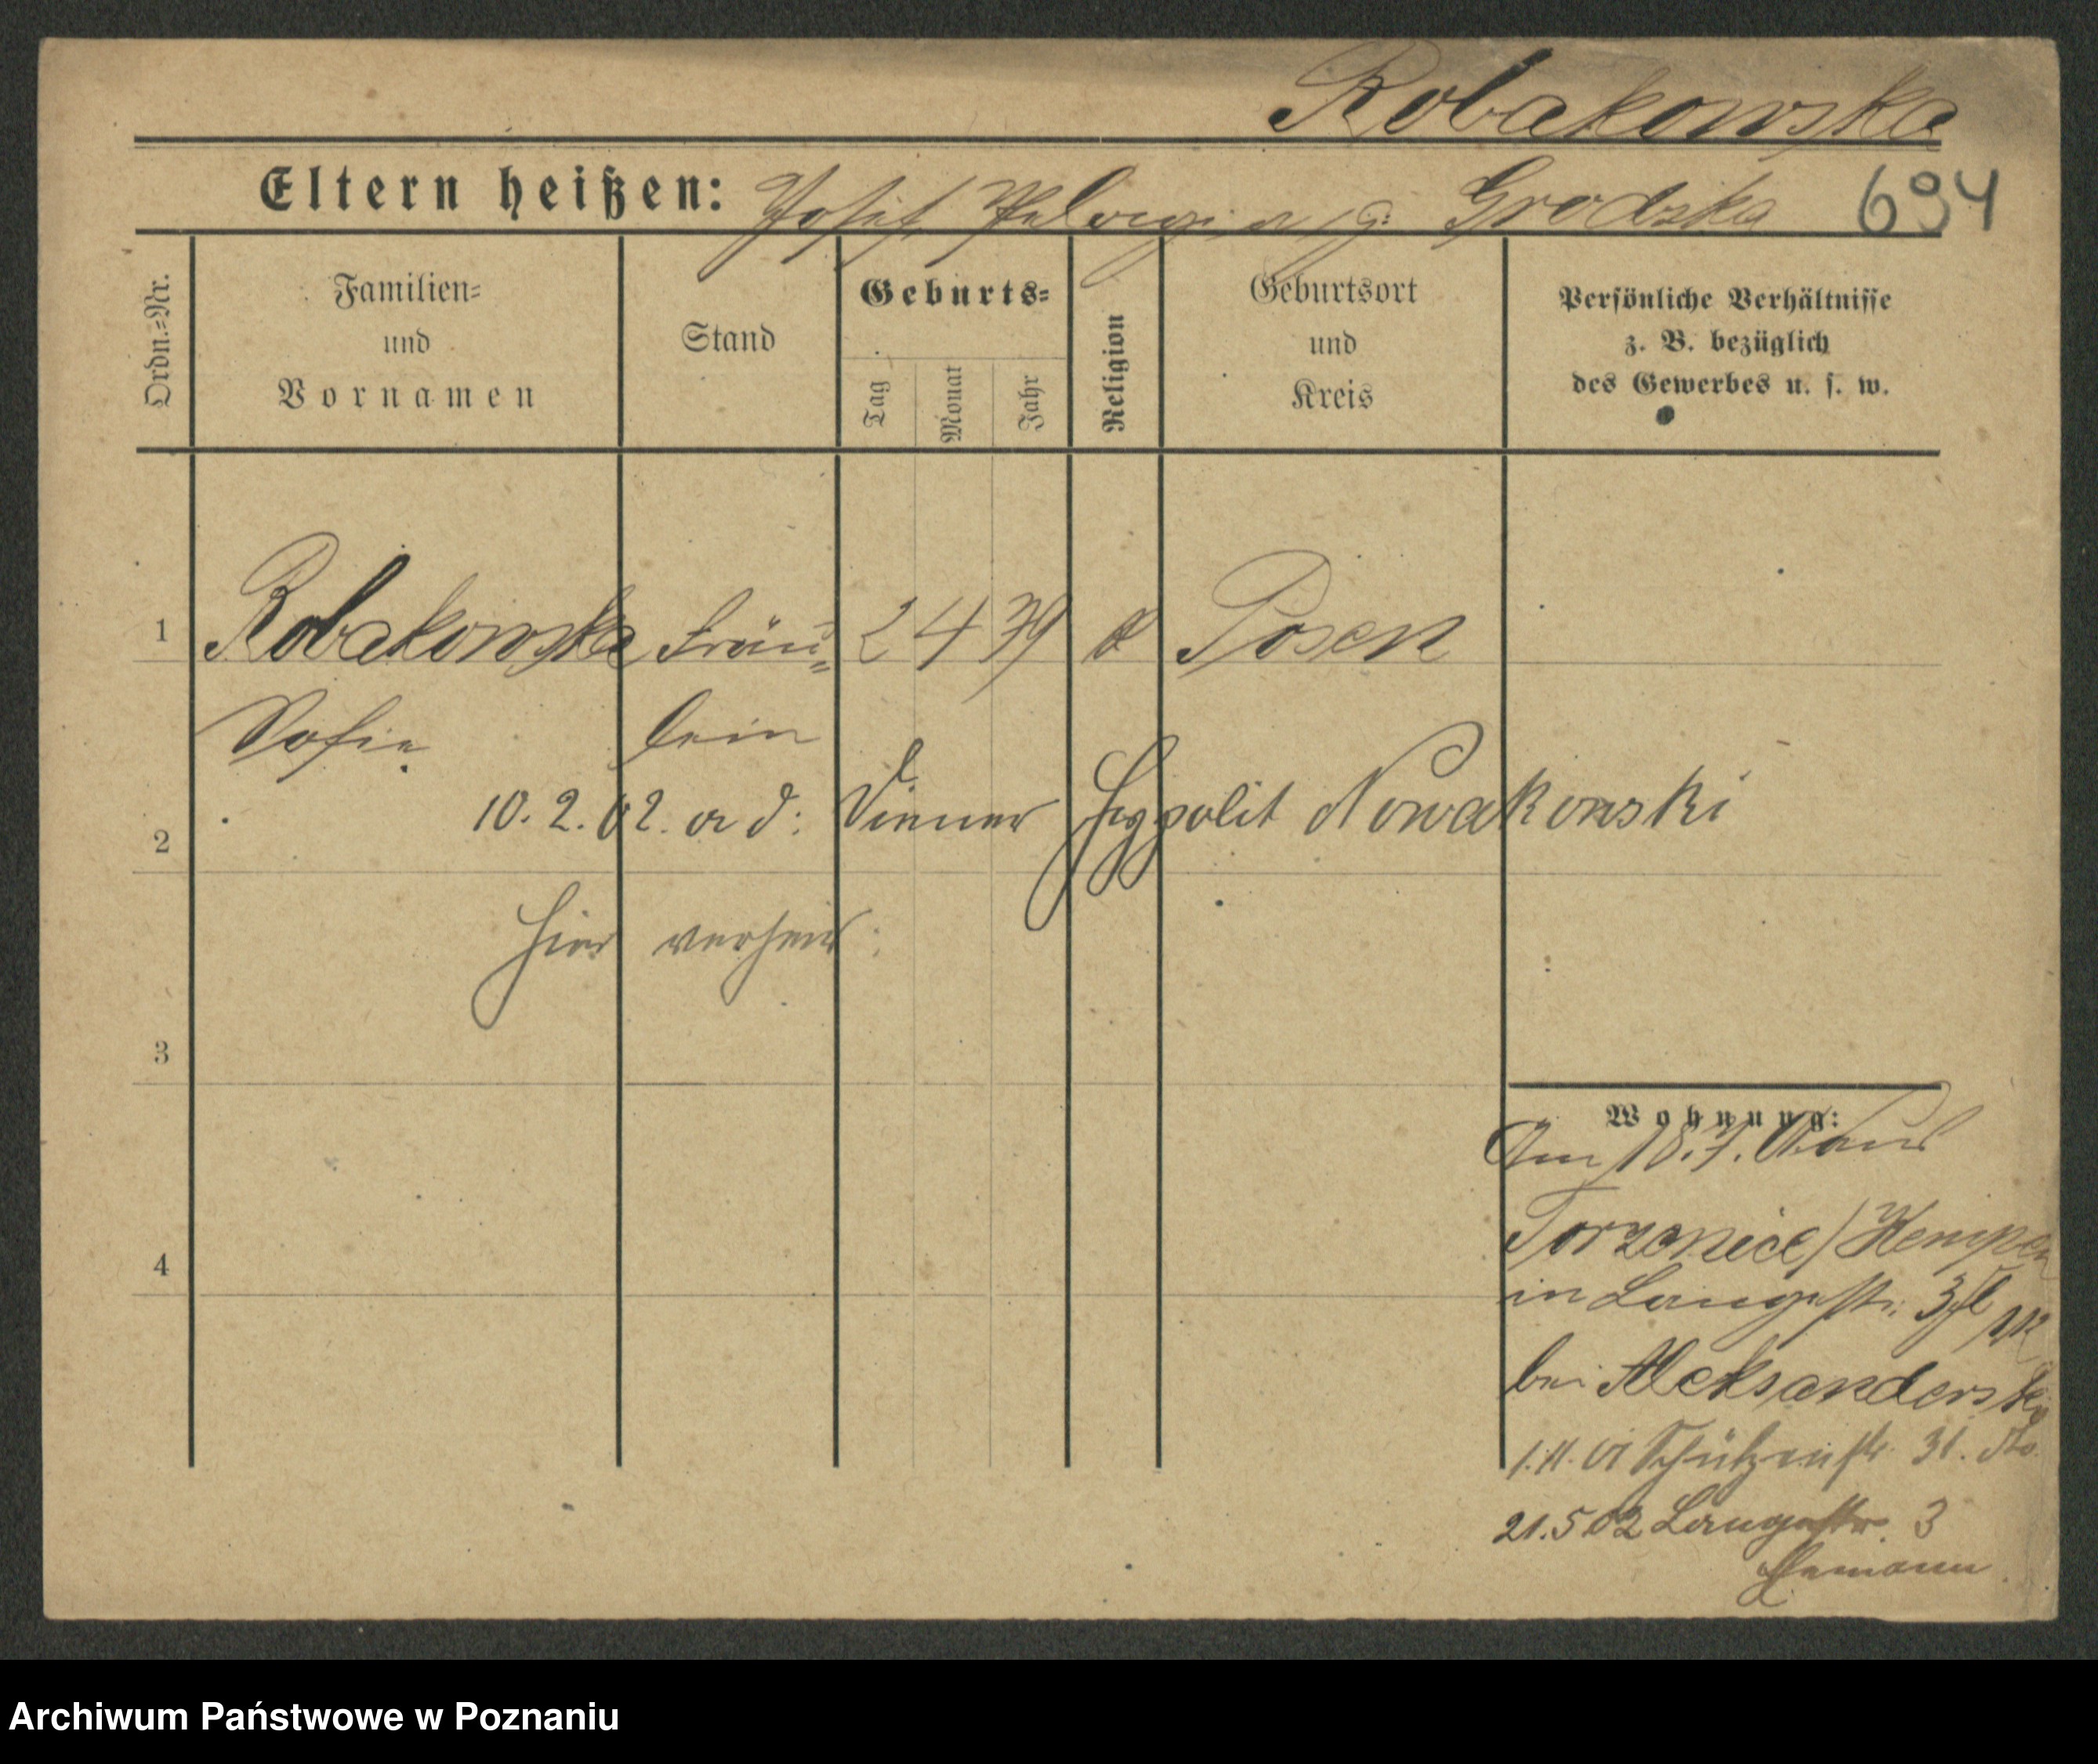 Robakowska
Eltern heißen: Josef, Pelagia, g: Grodzka 694
Ordn.=Nr.
Familien=
und
Vornamen
Stand
Geburts=
Tag
Monat
Jahr
Religion
Geburtsort
und
Kreis
Persönliche Verhältnisse
z. B. bezüglich
des Gewerbes u. s. w.
1 Robakowska Fräu= 2 4 79 k Posen
Sofie lein
2 10. 2. 02. a d: Diener Hyppolit Nowakowski
hier verheir:
3
4
Wohnung:
Am 18.7. 01 aus
Torzenice/Kempen
in Langestr. 3
bei Aleksanderska
1.11.01 Schützenstr. 31.
21.5 02 Langestr. 3
Archiwum Państwowe w Poznaniu